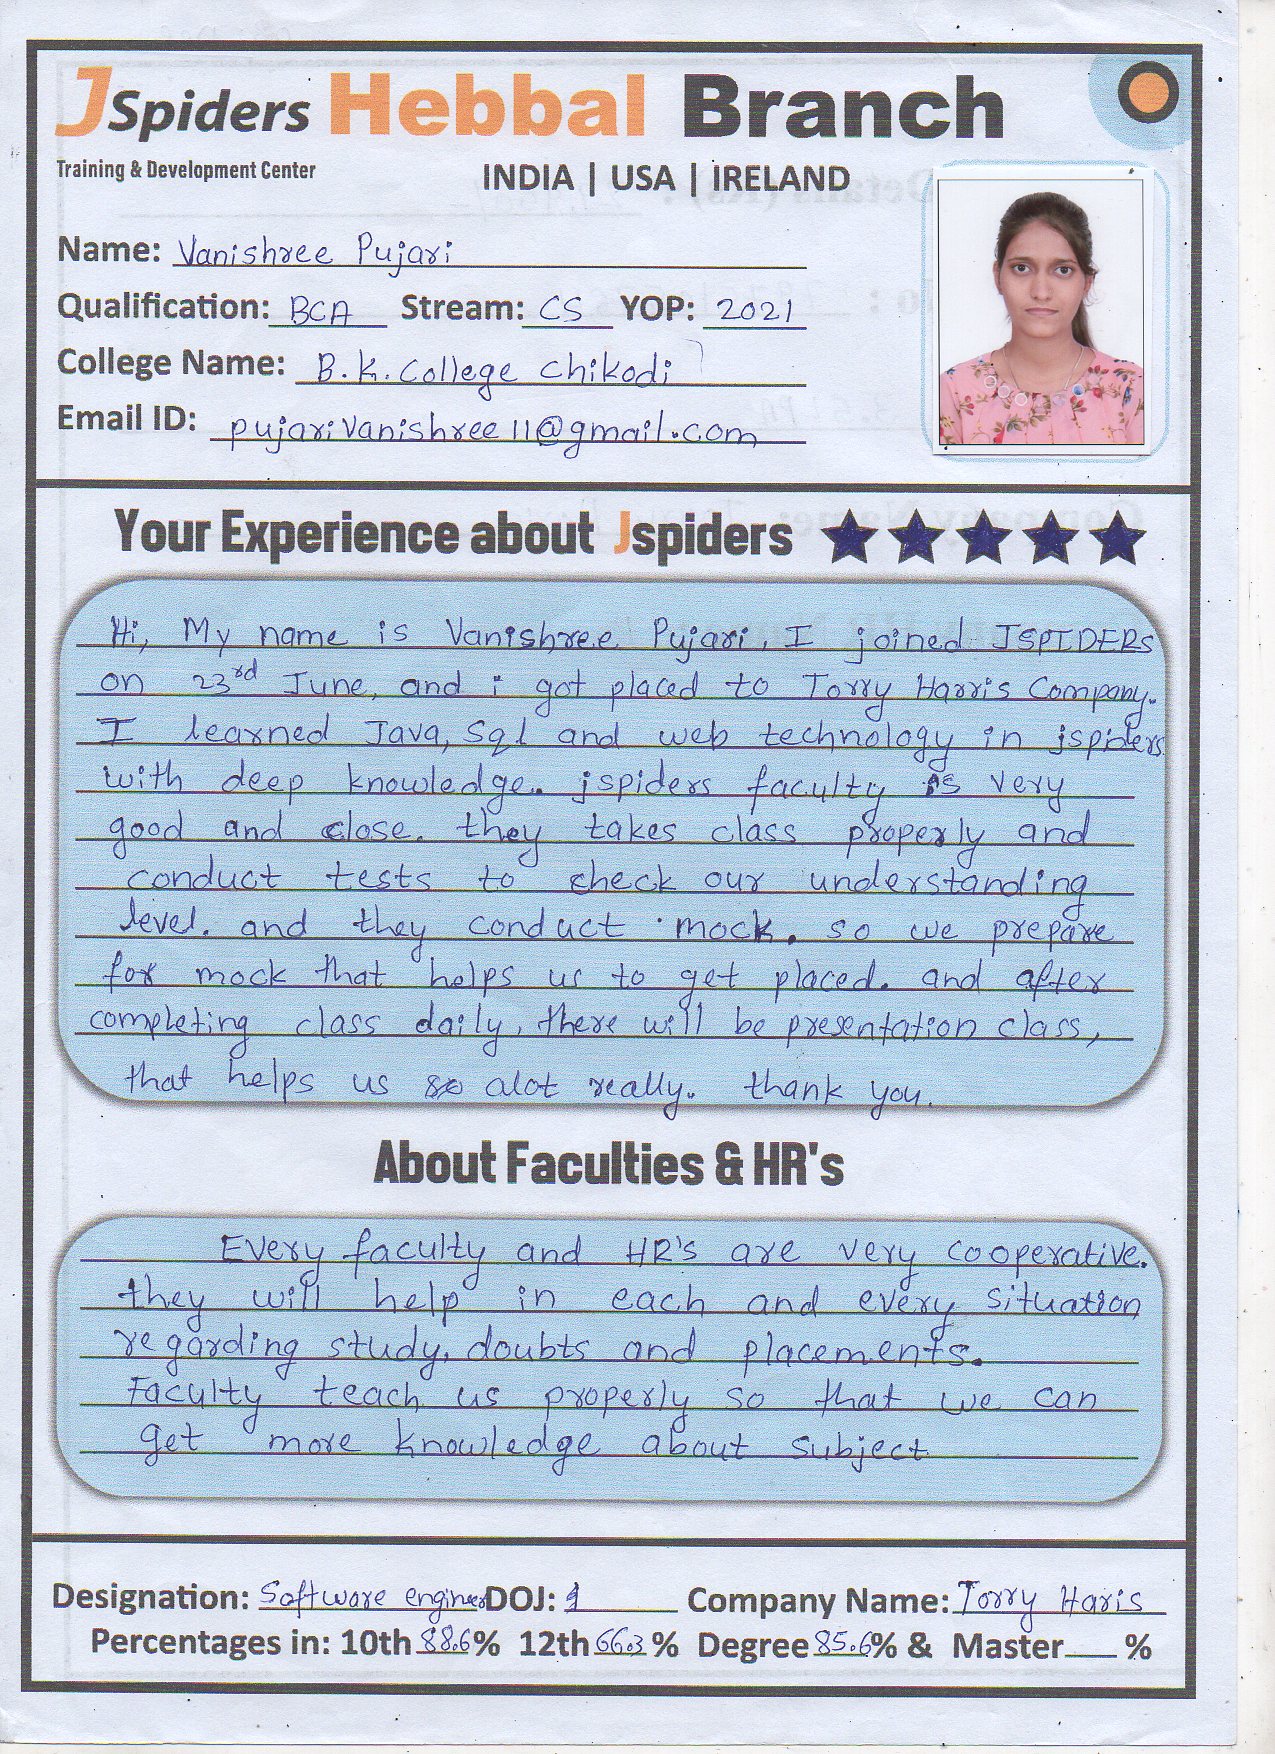 JSpiders Hebbal Branch
Training & Development Center
INDIA | USA | IRELAND
Name: Vanishree Pujari
Qualification: BCA Stream: CS YOP: 2021
College Name: B.K. College Chikodi
Email ID: pujarivanishree11@gmail.com
Your Experience about Jspiders
Hi, My name is Vanishree Pujari. I joined JSPIDERS
on 23rd June, and i got placed to Torry Harris Company.
I learned Java, Sql and web technology in jspiders
with deep knowledge. jspiders faculty is very
good and close. they takes class properly and
conduct tests to check our understanding
level. and they conduct mock. so we prepare
for mock that helps us to get placed. and after
completing class daily, there will be presentation class,
that helps us so alot really. thank you.
About Faculties & HR's
Every faculty and HR's are very cooperative.
they will help in each and every situation
regarding study, doubts and placements.
Faculty teach us properly so that we can
get more knowledge about subject
Designation: Software engineer DOJ: Company Name: Torry Haris
Percentages in: 10th 88.6% 12th 66.3% Degree 85.6% & Master %